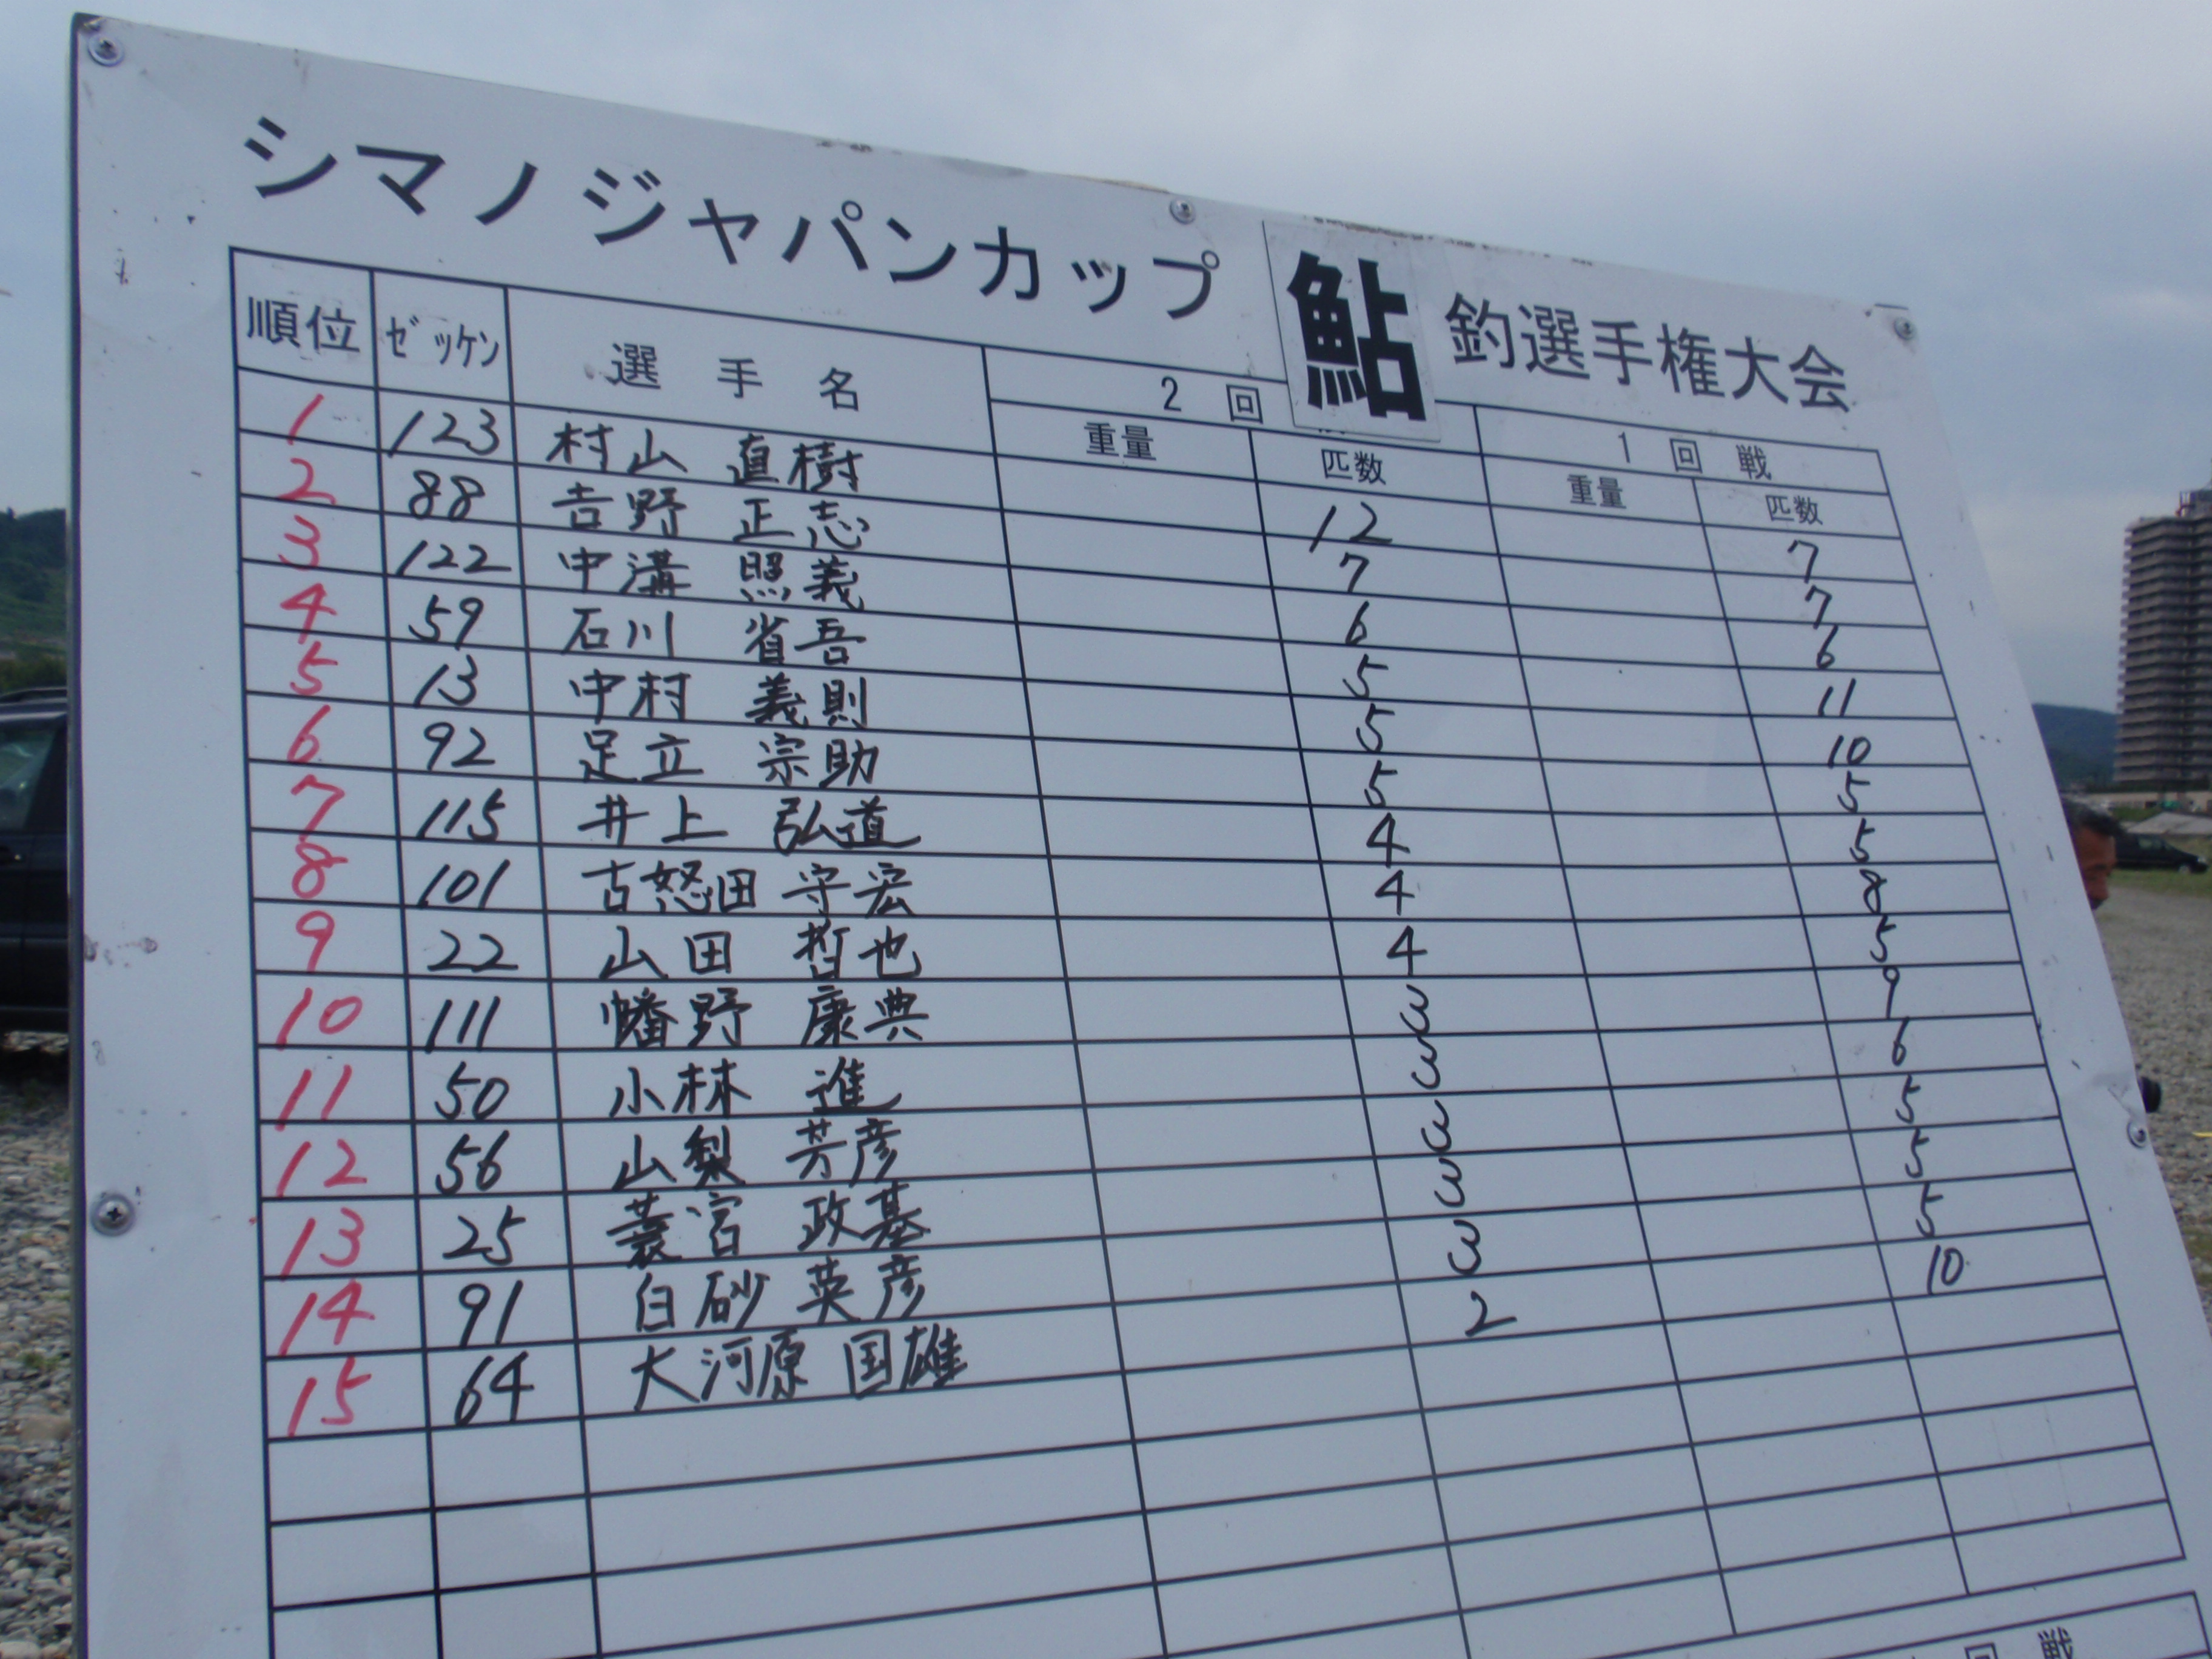 シマノジャパンカップ 鮎 釣選手権大会
順位 ゼッケン 選手名 2回 1回戦
重量 匹数 重量 匹数
1 123 村山 直樹 12 7
2 88 吉野 正志 7 7
3 122 中溝 照義 6 6
4 59 石川 省吾 5 11
5 13 中村 義則 5 10
6 92 足立 宗助 5 5
7 115 井上 弘道 4 5
8 101 古怒田 守宏 4 8
9 22 山田 哲也 4 5
10 111 幡野 康典 3 9
11 50 小林 進 3 6
12 56 山梨 芳彦 3 5
13 25 蓑宮 政基 3 5
14 91 白砂 英彦 3 5
15 64 大河原 国雄 2 10
回戦